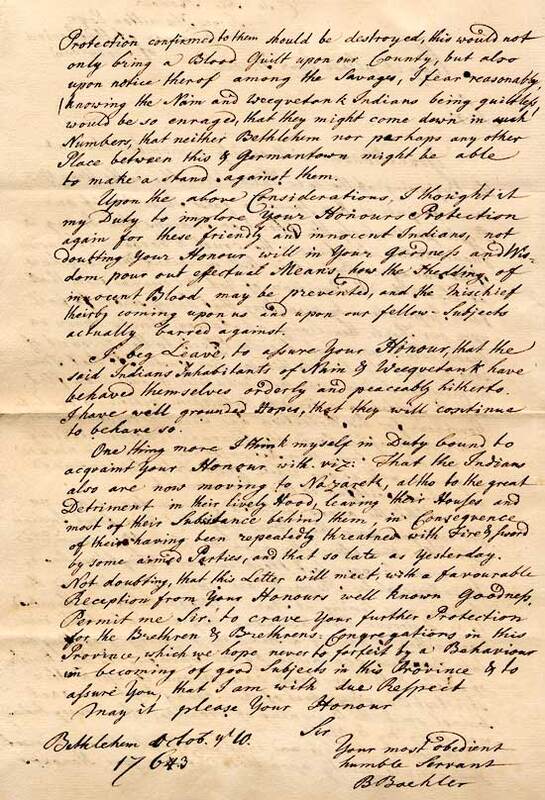 Protection confirmed to them should be destroyed, this would not
only bring a Blood Guilt upon our County, but also
upon notice therof among the Savages, I fear reasonably,
(knowing the Nain and Wecquetank Indians being guiltless,
would be so enraged, that they might come down in such
Numbers, that neither Bethlehem nor perhaps any other
Place between this & Germantown might be able
to make a stand against them.
Upon the above Considerations, I thought it
my Duty to implore Your Honours Protection
again for these friendly and innocent Indians, not
doubting Your Honour will in Your Goodness and Wis-
dom pour out effectual Means, how the Shedding of
innocent Blood may be prevented, and the Mischief
theirby coming upon us and upon our fellow-Subjects
actually barred against.
I beg Leave, to assure Your Honour, that the
said Indians Inhabitants of Nain & Wecquetank have
behaved themselves orderly and peaciably hitherto.
I have well grounded Hopes, that they will continue
to behave so.
One thing more I think myself in Duty bound to
acquaint Your Honour with. viz: That the Indians
also are now moving to Nazareth, altho to the great
Detriment in their lively Hood, leaving their Houses and
most of their Substance behind them, in Consequence
of their having been repeatedly threatned with Fire & sword
by some armed Parties, and that so late as Yesterday.
Not doubting, that this Letter will meet, with a favourable
Reception from Your Honours well known Goodness,
Permit me Sir. to crave Your further Protection
for the Brethren & Brethrens Congregations in this
Province, which we hope never to forfeit by a Behaviour
un becoming of good Subjects in this Province & to
assure You, that I am with due Respect
May it please Your Honour
Sir
Bethlehem Octob. ye 10.
1763
Your most obedient
humble Servant
B Boehler